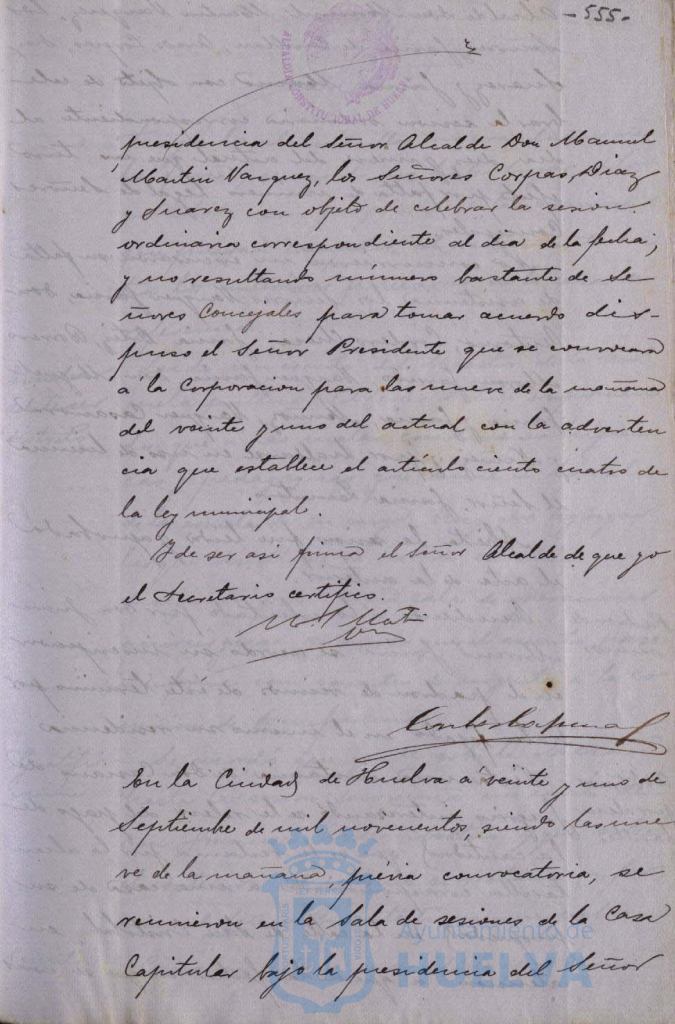 -555-
AYUNTAMIENTO CONSTITUCIONAL DE HUELVA
presidencia del Señor Alcalde Don Manuel
Martin Vazquez, los Señores Corpas, Diaz
y Suarez con objeto de celebrar la sesion
ordinaria correspondiente al dia de la fecha;
y no resultando número bastante de Se
ñores Concejales para tomar acuerdo dis-
puso el Señor Presidente que se convocara
á la Corporacion para las nueve de la mañana
del veinte y uno del actual con la adverten
cia que establece el articulo ciento cuatro de
la ley municipal.
Y de ser asi firma el Señor Alcalde de que yo
el Secretario certifico.
En la Ciudad de Huelva á veinte y uno de
Septiembre de mil novecientos, siendo las nue
ve de la mañana, prévia convocatoria, se
reunieron en la Sala de sesiones de la Casa
Capitular bajo la presidencia del Señor
Ayuntamiento de
HUELVA